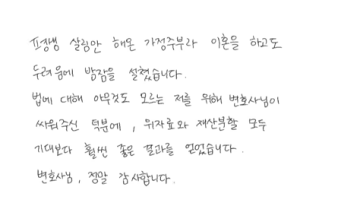 평생 살림만 해온 가정주부라 이혼을 하고도
두려움에 밤잠을 설쳤습니다.
법에 대해 아무것도 모르는 저를 위해 변호사님이
싸워주신 덕분에, 위자료와 재산분할 모두
기대보다 훨씬 좋은 결과를 얻었습니다.
변호사님, 정말 감사합니다.